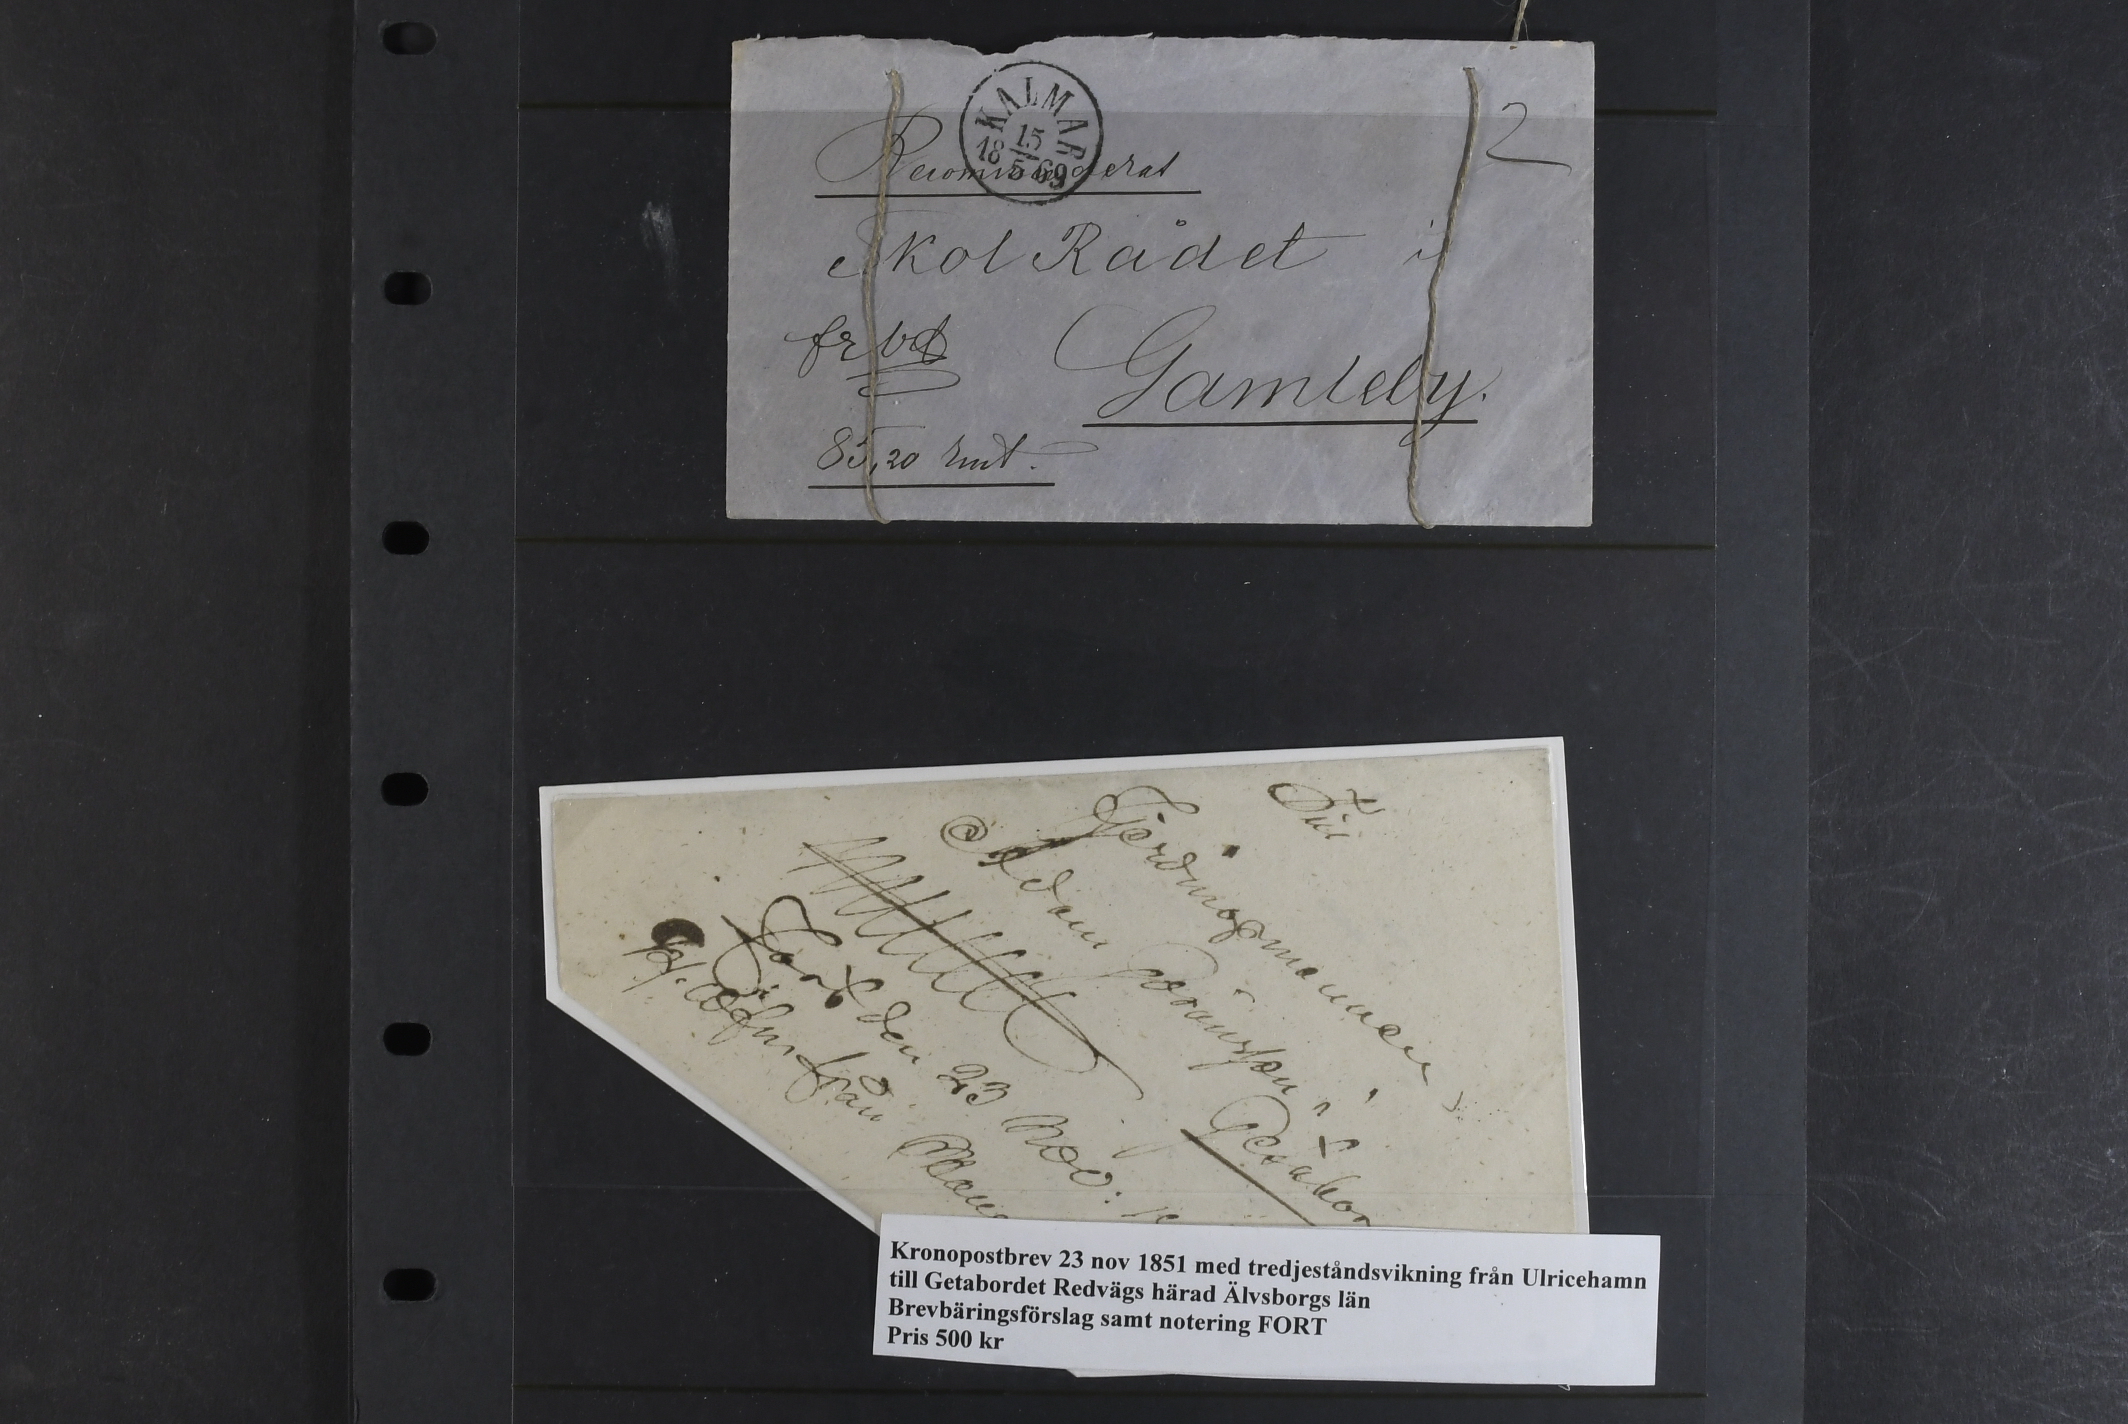 KALMAR
15
18 5 69
2
Recommenderat
Skol Rådet i
frbd
Gamleby.
85,20 rmt.
Till
Fjerdingsmannen
Adam Göransson i
Getabor
Fort den 23 Nov:
från
Kronopostbrev 23 nov 1851 med tredjeståndsvikning från Ulricehamn
till Getabordet Redvägs härad Älvsborgs län
Brevbäringsförslag samt notering FORT
Pris 500 kr